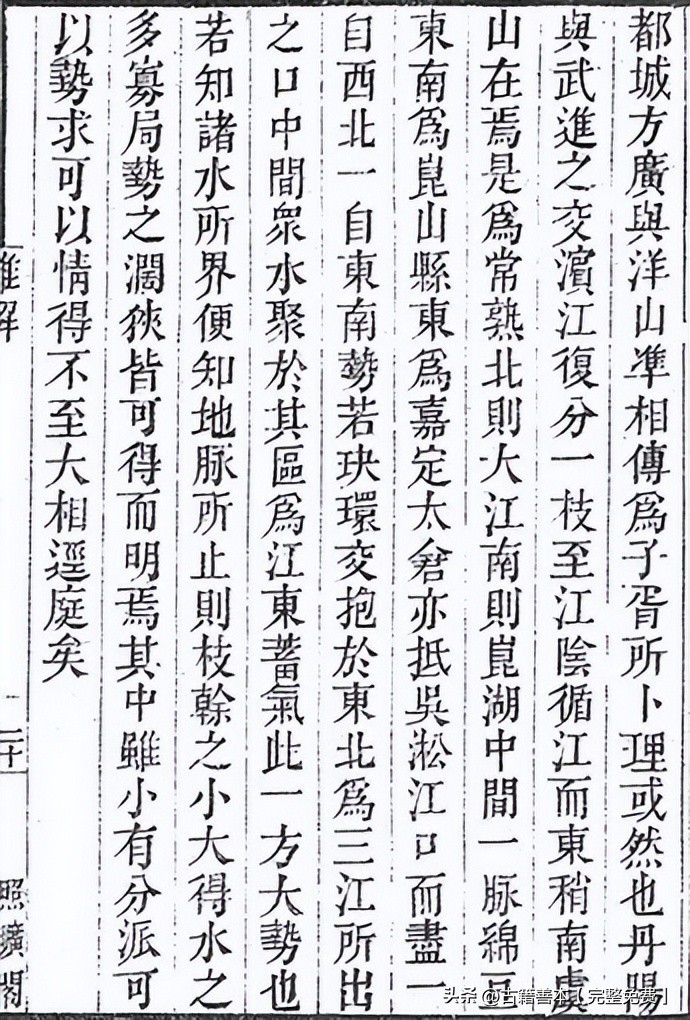 都城方廣與洋山凖相傳爲子胥所卜理或然也丹陽
與武進之交濱江復分一枝至江陰循江而東稍南虞
山在焉是爲常熟北則大江南則崑湖中間一脉綿亘
東南爲崑山縣東爲嘉定太倉亦抵吳淞江口而盡一
自西北一自東南勢若玦環交抱於東北爲三江所出
之口中間衆水聚於其區爲江東蓄氣此一方大勢也
若知諸水所界便知地脉所止則枝榦之小大得水之
多寡局勢之濶狹皆可得而明焉其中雖小有分派可
以勢求可以情得不至大相逕庭矣
二十
照曠閣
头条 @古籍善本【完整免费】